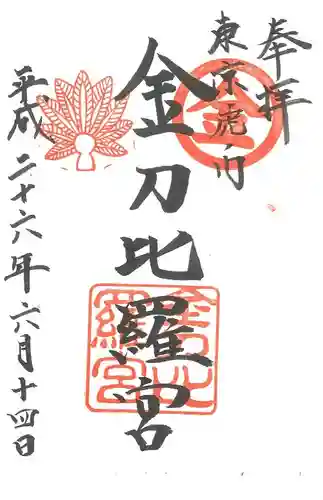 奉拝
東京虎ノ門
金
金刀比羅宮
金刀比羅宮
平成二十六年六月十四日